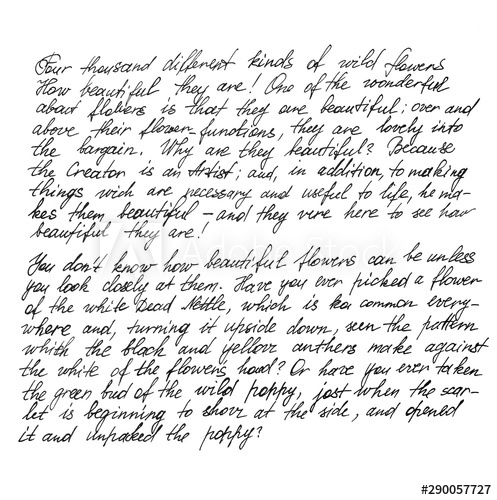 Four thousand different kinds of wild flowers
How beautiful they are! One of the wonderful
about flowers is that they are beautiful; over and
above their flower-functions, they are lovely into
the bargain. Why are they beautiful? Because
the Creator is an Artist; and, in addition, to making
things wich are necessary and useful to life, he ma-
kes them beautiful – and they vere here to see how
beautiful they are!
You don't know how beautiful flowers can be unless
you look closely at them. Have you ever picked a flower
of the white Dead Nettle, which is so common every-
where and, turning it upside down, seen the pattern
whith the black and yellow anthers make against
the white of the flowers hood? Or have you ever taken
the green bud of the wild poppy, jost when the scar-
let is beginning to show at the side, and opened
it and unpacked the poppy?
Adobe Stock
#290057727